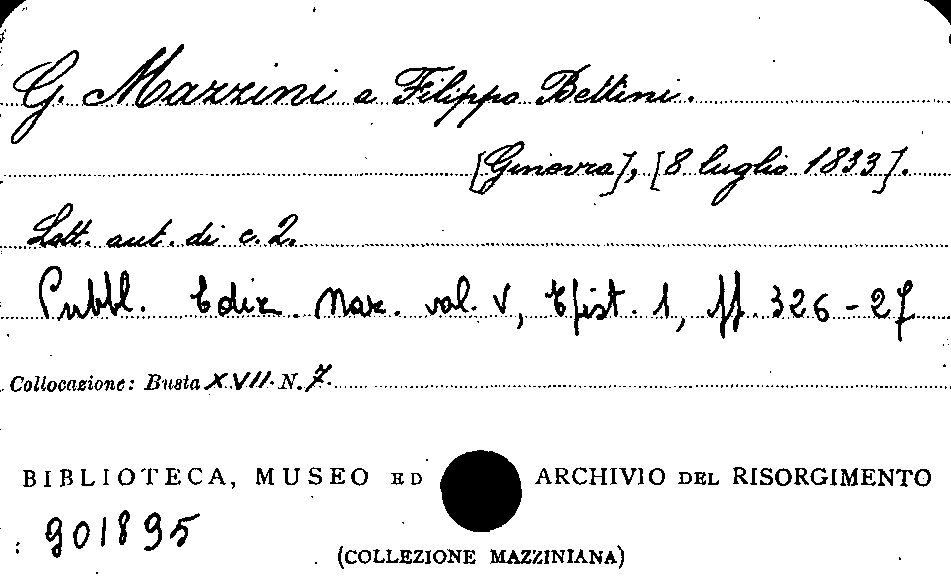 G. Mazzini a Filippo Bettini.
[Ginevra], [8 luglio 1833].
Lett. aut. di c. 2.
Pubbl. Ediz. Naz. vol. V, Epist. 1, pp. 326-27
Collocazione: Busta XVII. N. 7.
BIBLIOTECA, MUSEO ED ARCHIVIO DEL RISORGIMENTO
901895
(COLLEZIONE MAZZINIANA)